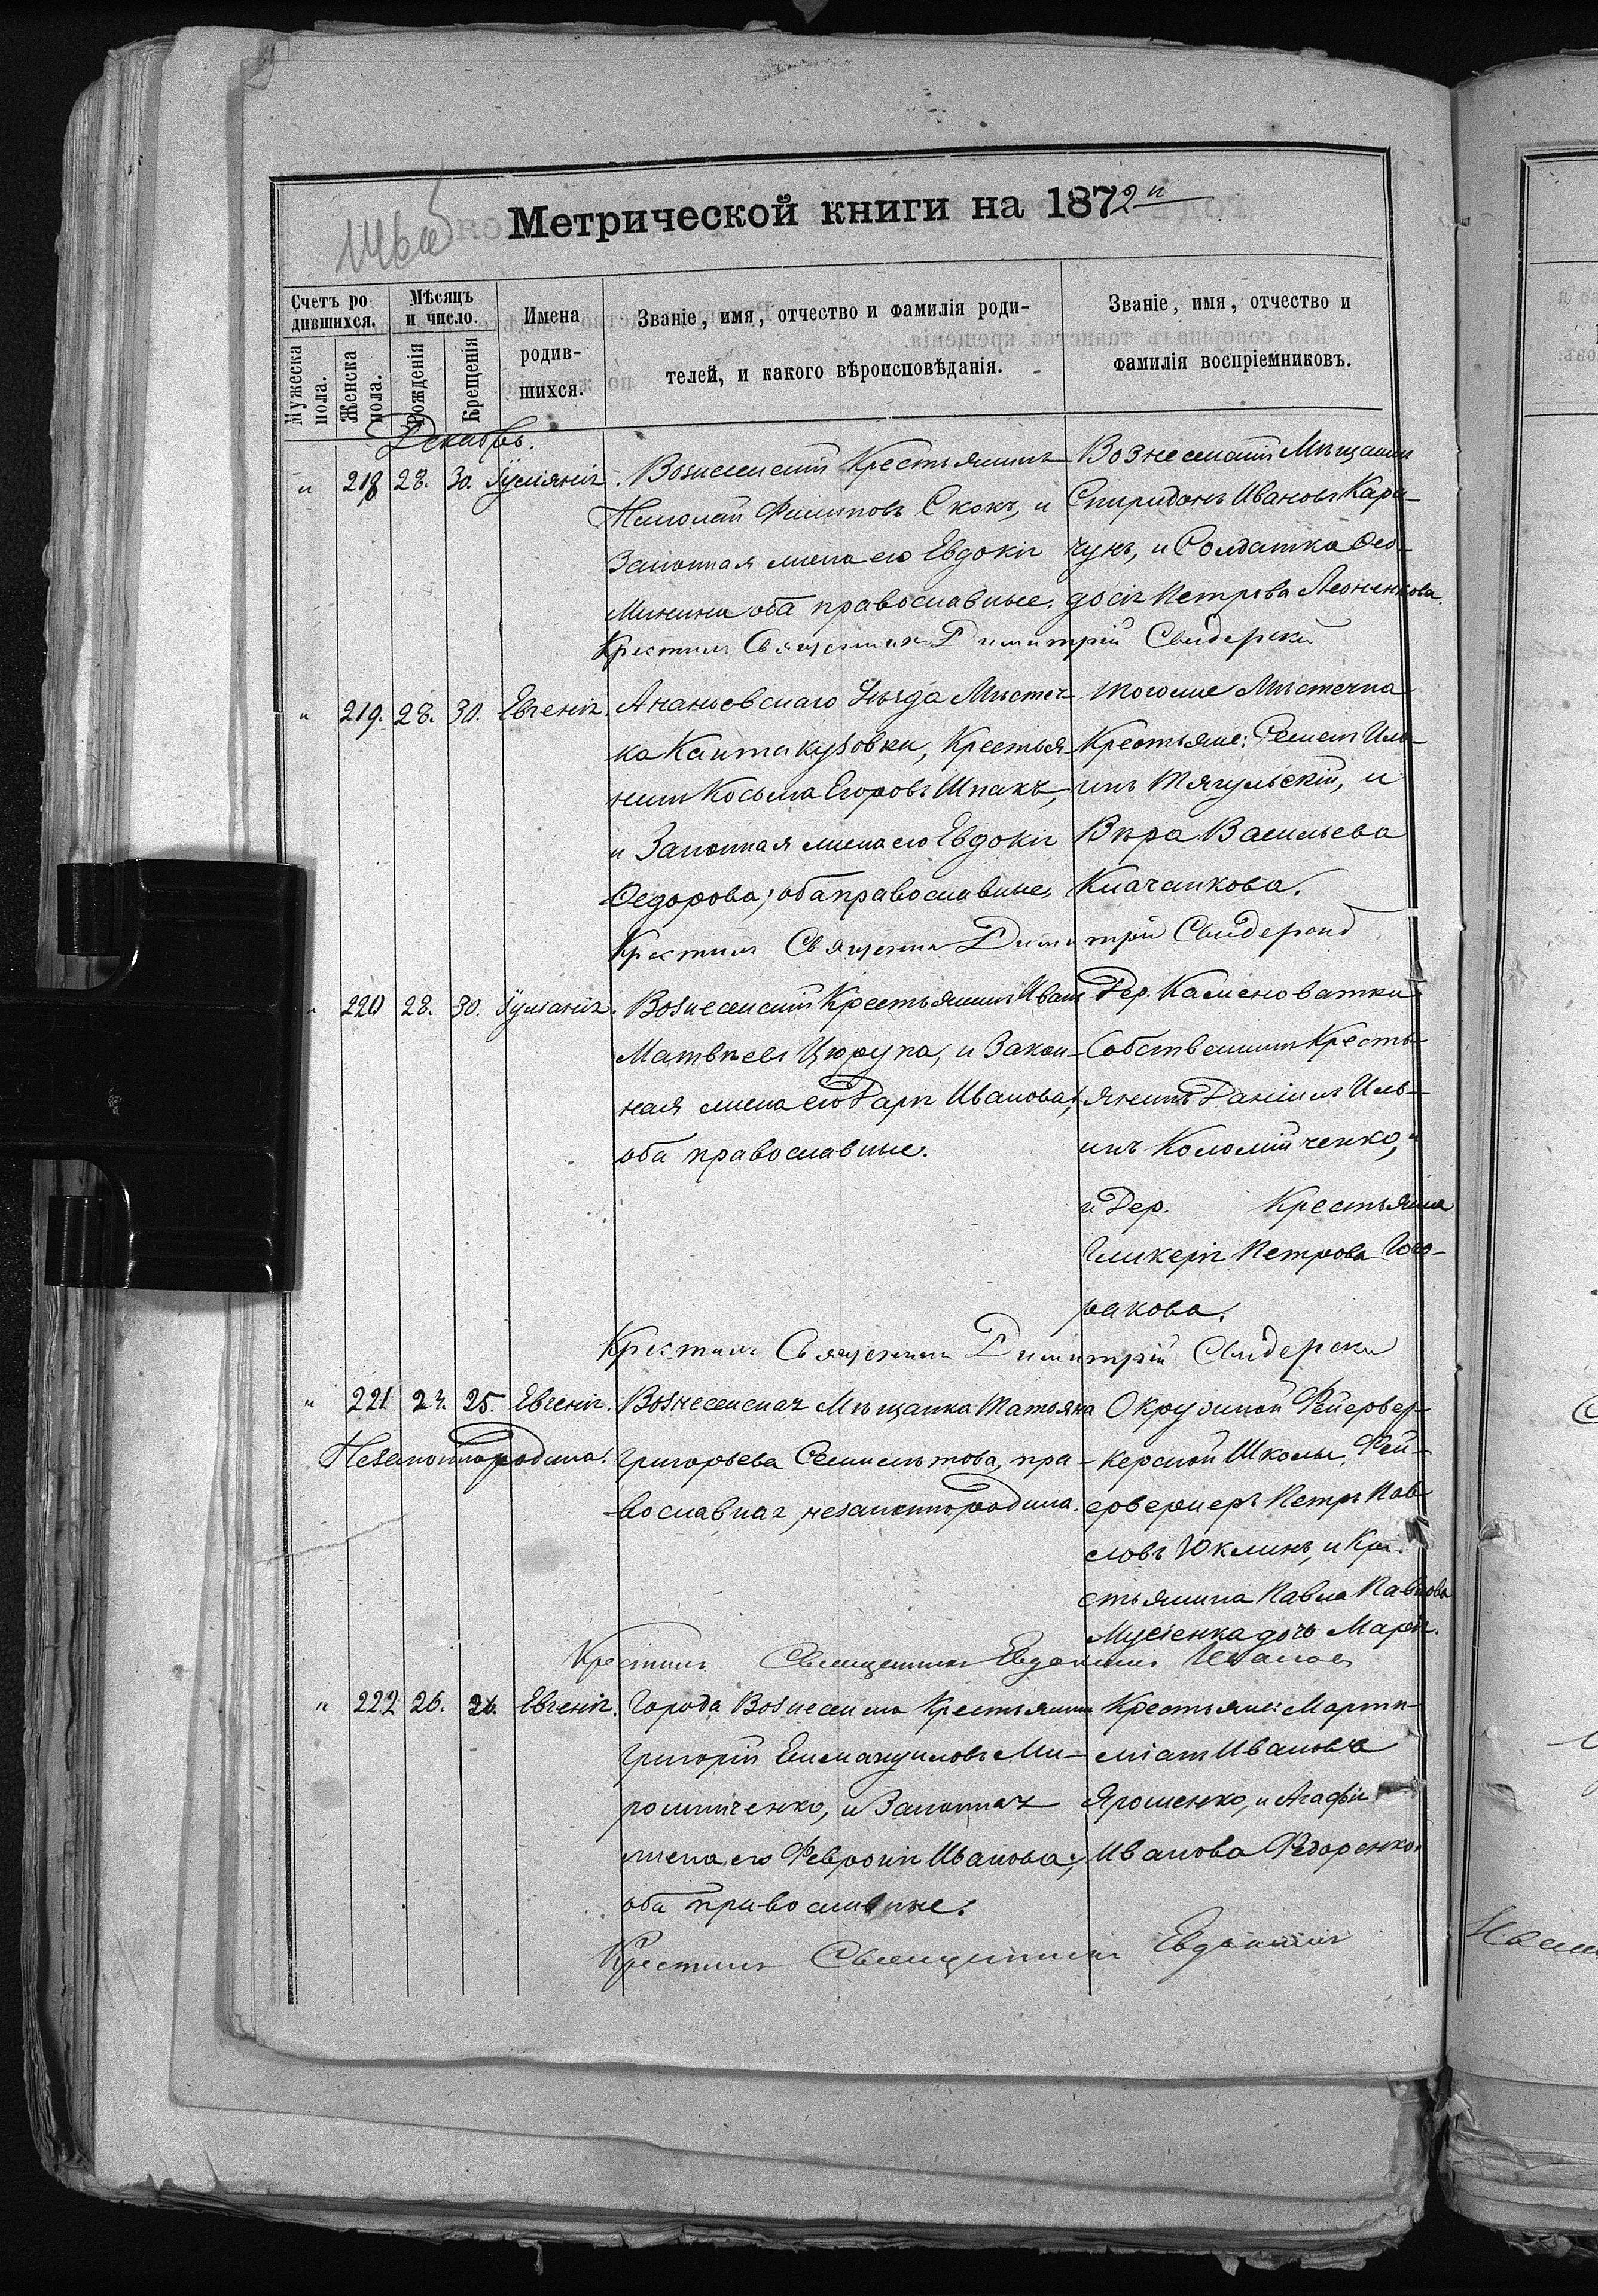 Метрической книги на 1872й
Счетъ родившихся.
Мужеска пола.
Женска пола.
Мѣсяцъ и число.
Рожденія
Крещенія
Имена родившихся.
Званіе, имя, отчество и фамилія родителей, и какого вѣроисповѣданія.
Званіе, имя, отчество и фамилія воспріемниковъ.
Декабрь.
" 218 28. 30. Іуліанія.
Вознесенскій Крестьянинъ
Николай Филиповъ Скокъ, и
Законная жена его Евдокія
Минина оба православные.
Вознесенскій Мѣщанинъ
Спиридонъ Ивановъ Кара-
чунъ, и Солдатка Ѳео-
досія Петрова Леоненкова.
Крестилъ Священникъ Димитрій Свидерскій
" 219. 28. 30. Евгенія.
Ананьевскаго Уѣзда Мѣстеч-
ка Кантакузовки, Крестья-
нинъ Косьма Егоровъ Шпакъ,
и Законная жена его Евдокія
Ѳедорова; оба православные.
тогоже Мѣстечка
Крестьяне: Семенъ Иль-
инъ Тягульскій, и
Вѣра Васильева
Клачанкова.
Крестилъ Священникъ Димитрій Свидерскій
" 220 28. 30. Іуліанія.
Вознесенскій Крестьянинъ Иванъ
Матвѣевъ Цюрупа, и Закон-
ная жена его Дарія Иванова;
оба православные.
Дер. Касьеноватки
Собственникъ Кресть-
янинъ Даніилъ Иль-
инъ Коломійченко,
и Дер. Крестьянка
Гликерія Петрова
ракова.
Крестилъ Священникъ Димитрій Свидерскій
" 221 24. 25. Евгенія.
Незаконнорожденная.
Вознесенская Мѣщанка Татьяна
Григорьева Семилѣтова, пра-
вославная, незаконнорожденна.
Окружной Фейервер-
керской Школы, Фей-
ерверкеръ Петръ Пав-
ловъ Юклинъ, и Кре-
стьянина Павла Павлова
Мусіенка дочь Марія.
Крестилъ Священникъ Евдокимъ
" 222 26. 26. Евгенія.
Города Вознесенска Крестьянинъ
Григорій Еммануиловъ Ми-
рошниченко, и Законная
жена его Февронія Иванова;
оба православные.
Крестьяне: Марти-
ніанъ Ивановъ
Ярошенко, и Агафія
Иванова Федоренко.
Крестилъ Священникъ Евдокимъ